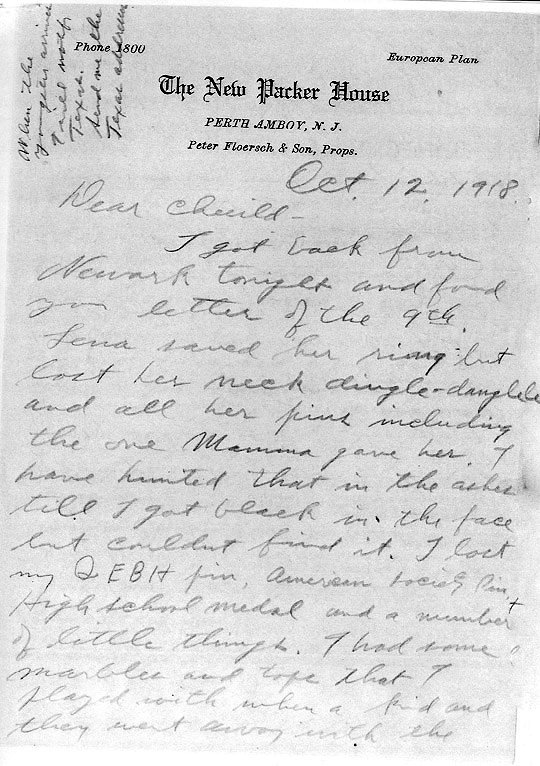 When the
youngster arrives
I will notify
Texas.
Send me the
Texas address
Phone 1800
European Plan
The New Packer House
PERTH AMBOY, N. J.
Peter Floersch & Son, Props.
Oct. 12, 1918.
Dear Cheild-
I got back from
Newark tonight and fond
you letter of the 9th.
Lena saved her ring but
lost her neck dingle-danglele
and all her pins including
the one Mamma gave her. I
have hunted that in the ashes
till I got black in the face
but couldnt find it. I lost
my QEBH pin, American Society Pin,
High school medal and a number +
of little things. I had some
marbles and tops that I
played with when a kid and
they went away with the